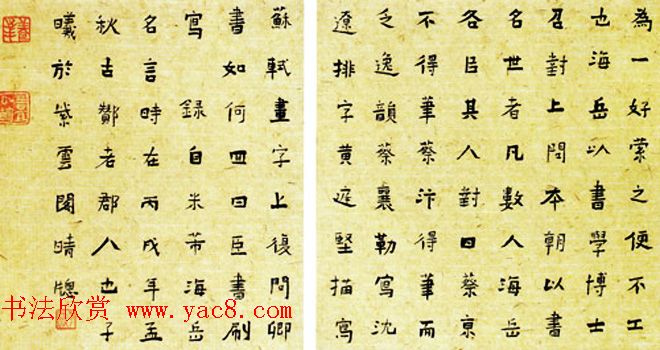 為一好縈之便不工
也海岳以書學博士
召對上問本朝以書
名世者凡數人海岳
各㠯其人對曰蔡京
不得筆蔡汴得筆而
乏逸韻蔡襄勒寫沈
遼排字黄庭堅描寫
蘇軾畫字上復問卿
書如何四曰臣書刷
寫錄自米芾海岳
名言時在丙戌年孟
秋古鄮者郡人也子
曦於紫雲閣晴牕
书法欣赏 www.yac8.com